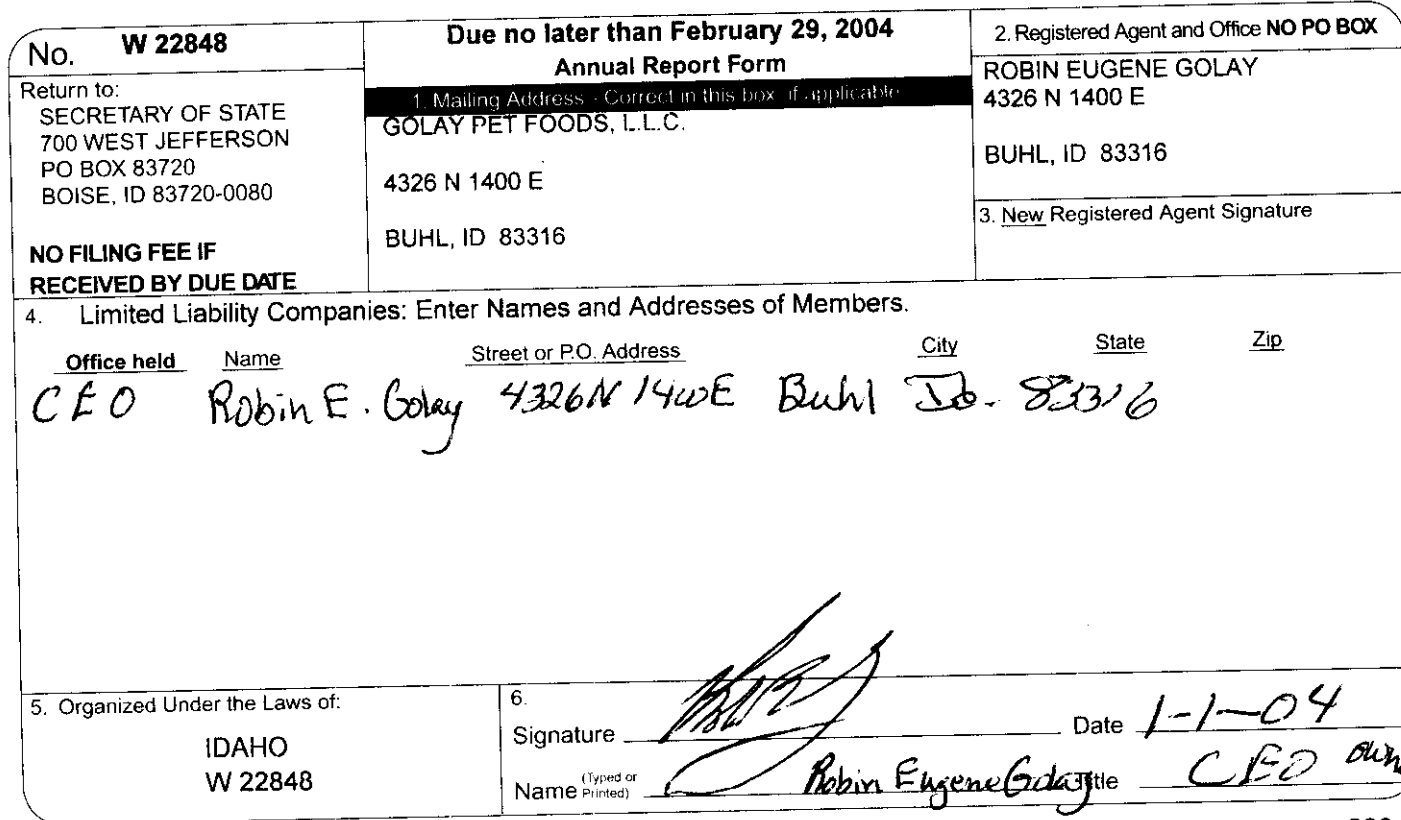 No. W 22848
Return to:
SECRETARY OF STATE
700 WEST JEFFERSON
PO BOX 83720
BOISE, ID 83720-0080
NO FILING FEE IF
RECEIVED BY DUE DATE
Due no later than February 29, 2004
Annual Report Form
1. Mailing Address - Correct in this box if applicable
GOLAY PET FOODS, L.L.C.
4326 N 1400 E
BUHL, ID 83316
2. Registered Agent and Office NO PO BOX
ROBIN EUGENE GOLAY
4326 N 1400 E
BUHL, ID 83316
3. New Registered Agent Signature
4. Limited Liability Companies: Enter Names and Addresses of Members.
Office held Name Street or P.O. Address City State Zip
CEO Robin E. Golay 4326 N 1400 E Buhl Id. 83316
5. Organized Under the Laws of:
IDAHO
W 22848
6.
Signature Date 1-1-04
Name (Typed or Printed) Robin Eugene Golay Title CEO